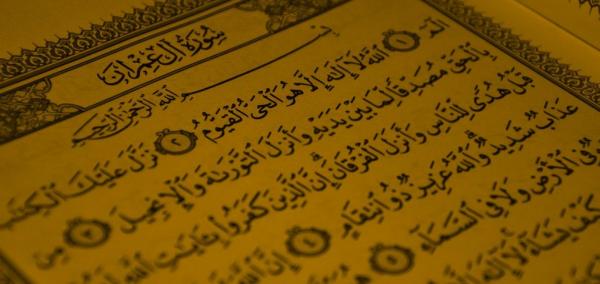 سُورَةُ آلِ عِمْرَانَ
بِسْمِ اللَّهِ الرَّحْمَٰنِ الرَّحِيمِ
الٓمٓ ١ ٱللَّهُ لَآ إِلَٰهَ إِلَّا هُوَ ٱلْحَىُّ ٱلْقَيُّومُ ٢ نَزَّلَ عَلَيْكَ ٱلْكِتَٰبَ
بِٱلْحَقِّ مُصَدِّقًا لِّمَا بَيْنَ يَدَيْهِ وَأَنزَلَ ٱلتَّوْرَىٰةَ وَٱلْإِنجِيلَ ٣ مِن
قَبْلُ هُدًى لِّلنَّاسِ وَأَنزَلَ ٱلْفُرْقَانَ ۗ إِنَّ ٱلَّذِينَ كَفَرُوا۟ بِـَٔايَٰتِ ٱللَّهِ
عَذَابٌ شَدِيدٌ ۗ وَٱللَّهُ عَزِيزٌ ذُو ٱنتِقَامٍ ٤ إِنَّ ٱللَّهَ
فِى ٱلْأَرْضِ وَلَا فِى ٱلسَّمَآءِ ٥
كَيْفَ يَشَآءُ ۚ لَآ إِلَٰهَ